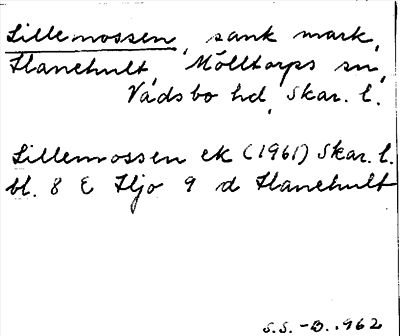 Lillemossen, sank mark,
Hanehult, Mölltorps sn,
Vadsbo hd, Skar. l.
Lillemossen ek (1961) Skar. l.
bl. 8 E Hjo 9 d Hanehult
S.S.-B. 1962